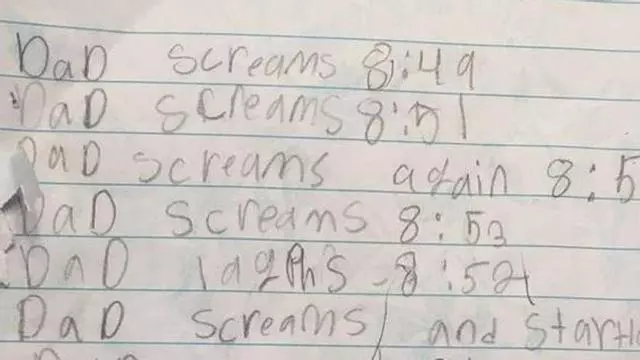 DaD screams 8:49
DaD screams 8:51
DaD screams again 8:5
DaD screams 8:53
DaD lagphs - 8:54
DaD screams and start